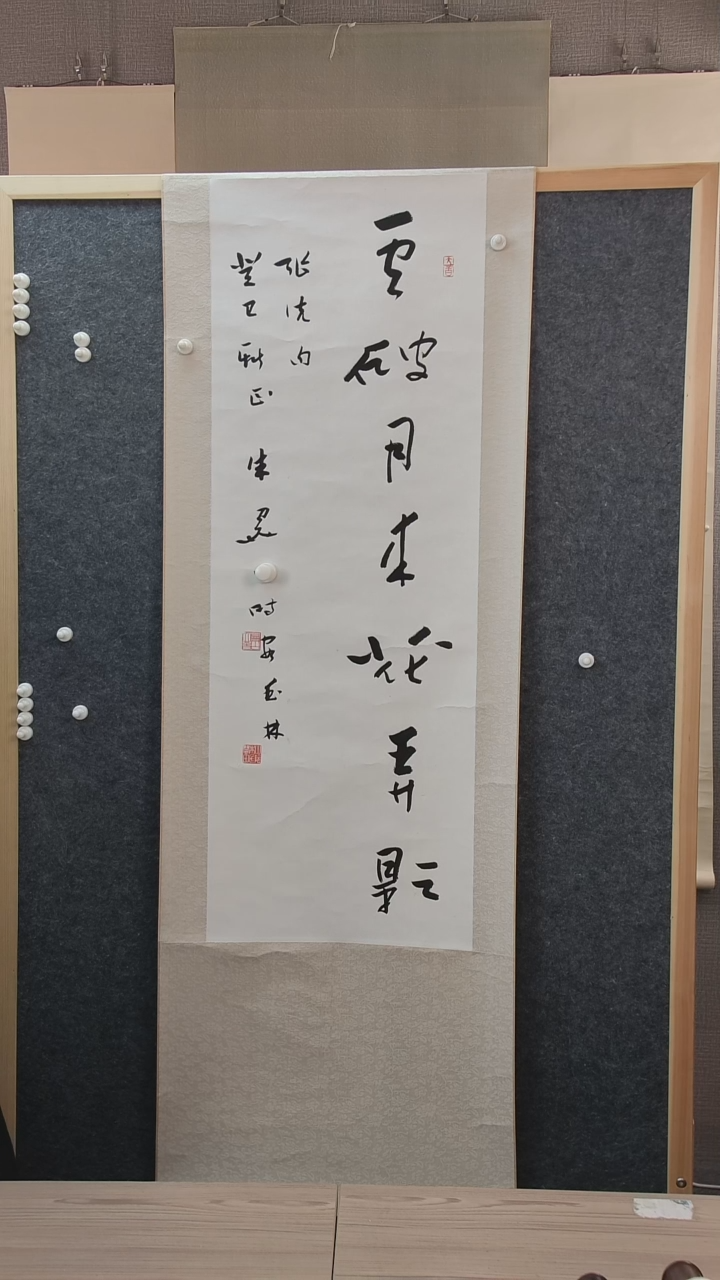 雲破月来花弄影
張先句
癸巳秋正
時安玉林